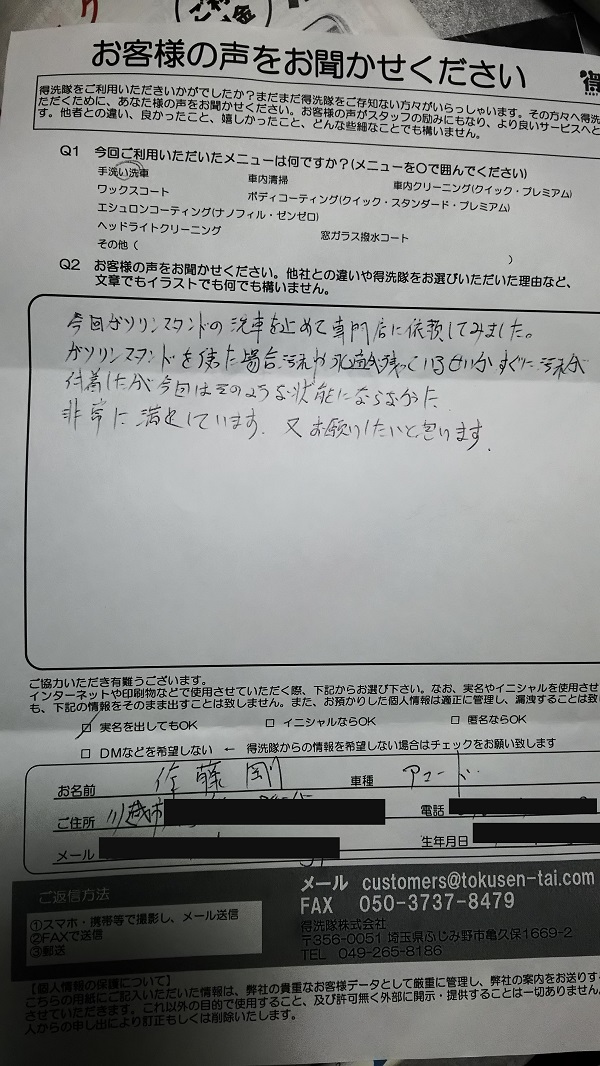 お客様の声をお聞かせください
得洗隊をご利用いただきいかがでしたか?まだまだ得洗隊をご存知ない方々がいらっしゃいます。その方々へ得洗
ただくために、あなた様の声をお聞かせください。お客様の声がスタッフの励みにもなり、より良いサービスへと
す。他者との違い、良かったこと、嬉しかったこと、どんな些細なことでも構いません。
Q1 今回ご利用いただいたメニューは何ですか?(メニューを○で囲んでください)
手洗い洗車 車内清掃 車内クリーニング(クイック・プレミアム)
ワックスコート ボディコーティング(クイック・スタンダード・プレミアム)
エシュロンコーティング(ナノフィル・ゼンゼロ)
ヘッドライトクリーニング 窓ガラス撥水コート
その他( )
Q2 お客様の声をお聞かせください。他社との違いや得洗隊をお選びいただいた理由など、
文章でもイラストでも何でも構いません。
今回ガソリンスタンドの洗車を止めて専門店に依頼してみました。
ガソリンスタンドを使った場合汚れや水適が残っているせいかすぐに汚れが
付着したが今回はそのような状態にならなかった
非常に満足しています。又お願いしたいと思います。
ご協力いただき有難うございます。
インターネットや印刷物などで使用させていただく際、下記からお選び下さい。なお、実名やイニシャルを使用させ
も、下記の情報をそのまま出すことは致しません。また、お預かりした個人情報は適正に管理し、漏洩することは致
□ 実名を出してもOK □ イニシャルならOK □ 匿名ならOK
□ DMなどを希望しない ← 得洗隊からの情報を希望しない場合はチェックをお願い致します
お名前 佐藤 剛 車種 アコード
ご住所 川越市 電話
メール 生年月日
ご返信方法
①スマホ・携帯等で撮影し、メール送信
②FAXで送信
③郵送
メール customers@tokusen-tai.com
FAX 050-3737-8479
得洗隊株式会社
〒356-0051 埼玉県ふじみ野市亀久保1669-2
TEL 049-265-8186
【個人情報の保護について】
こちらの用紙にご記入いただいた情報は、弊社の貴重なお客様データとして厳重に管理し、弊社の案内をお送りす
させていただきます。これ以外の目的で使用すること、及び許可無く外部に開示・提供することは一切ありません。
人からの申し出により訂正もしくは削除いたします。